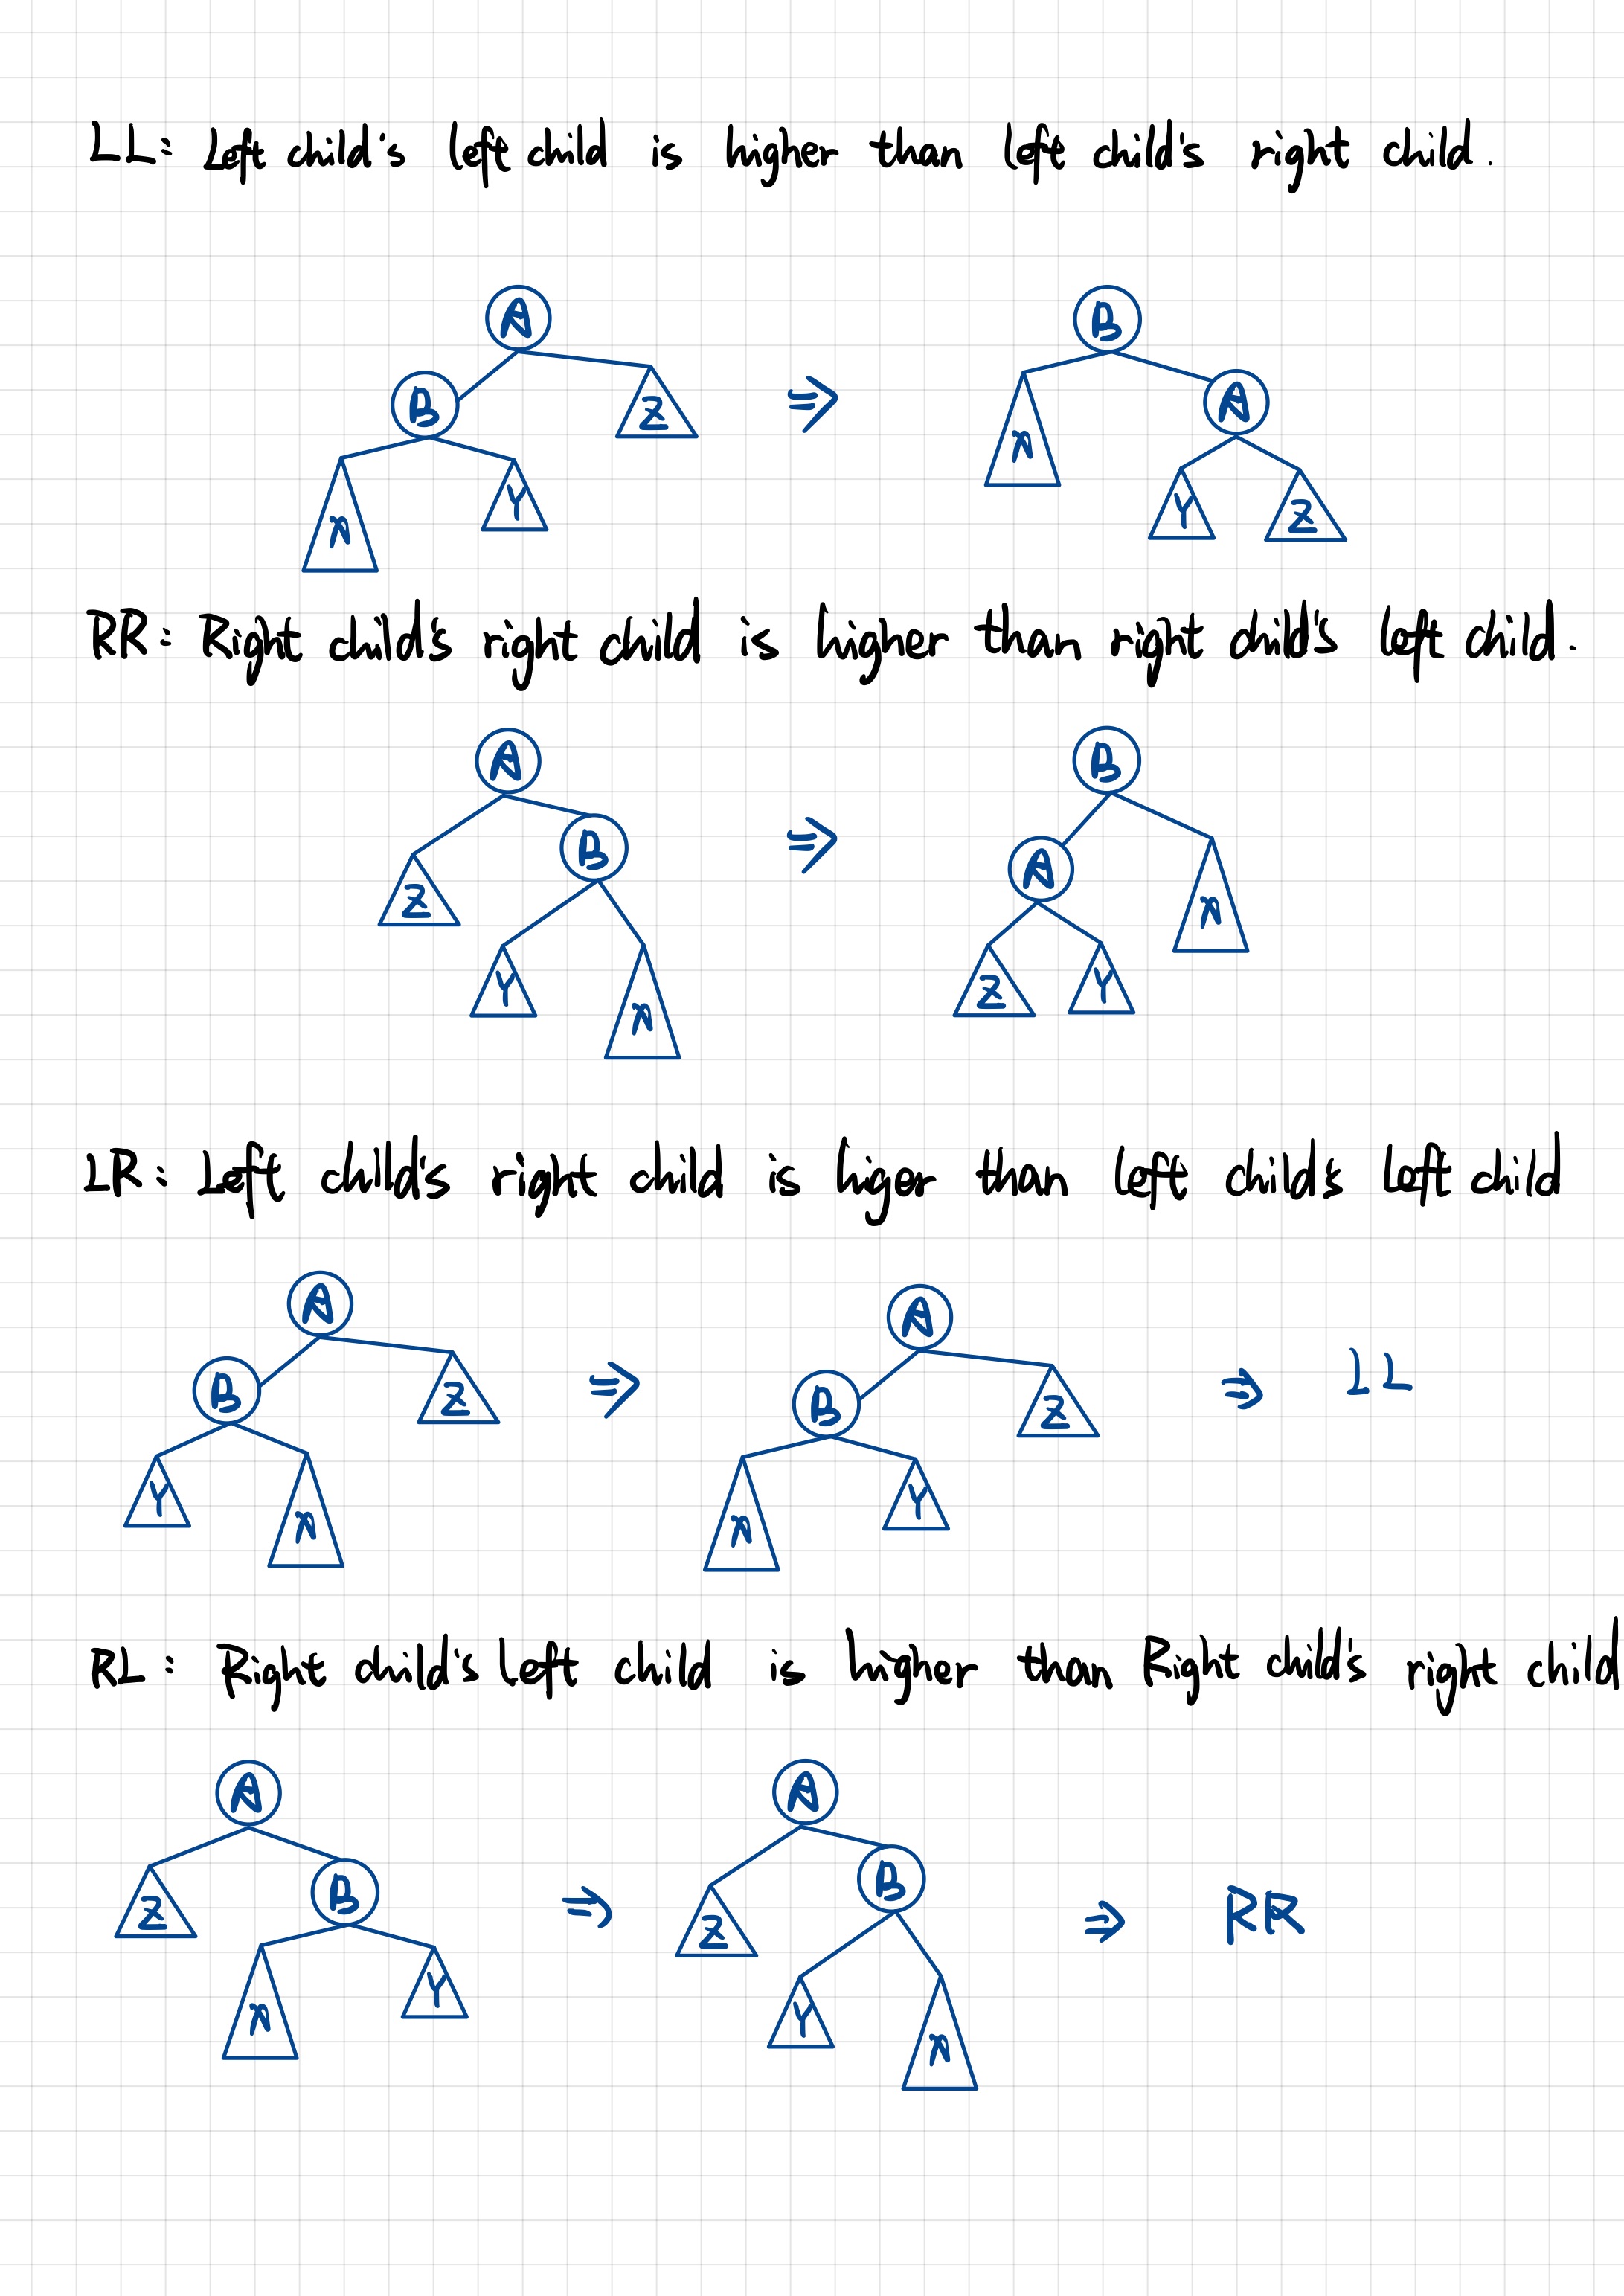 LL: Left child's left child is higher than left child's right child.
A B
B Z ⇒ A
X Y X Y Z
RR: Right child's right child is higher than right child's left child.
A B
Z B ⇒ A X
Y X Z Y
LR: Left child's right child is higer than left child's left child
A A
B Z ⇒ B Z ⇒ LL
Y X X Y
RL: Right child's left child is higher than Right child's right child
A A
Z B ⇒ Z B ⇒ RR
X Y Y X